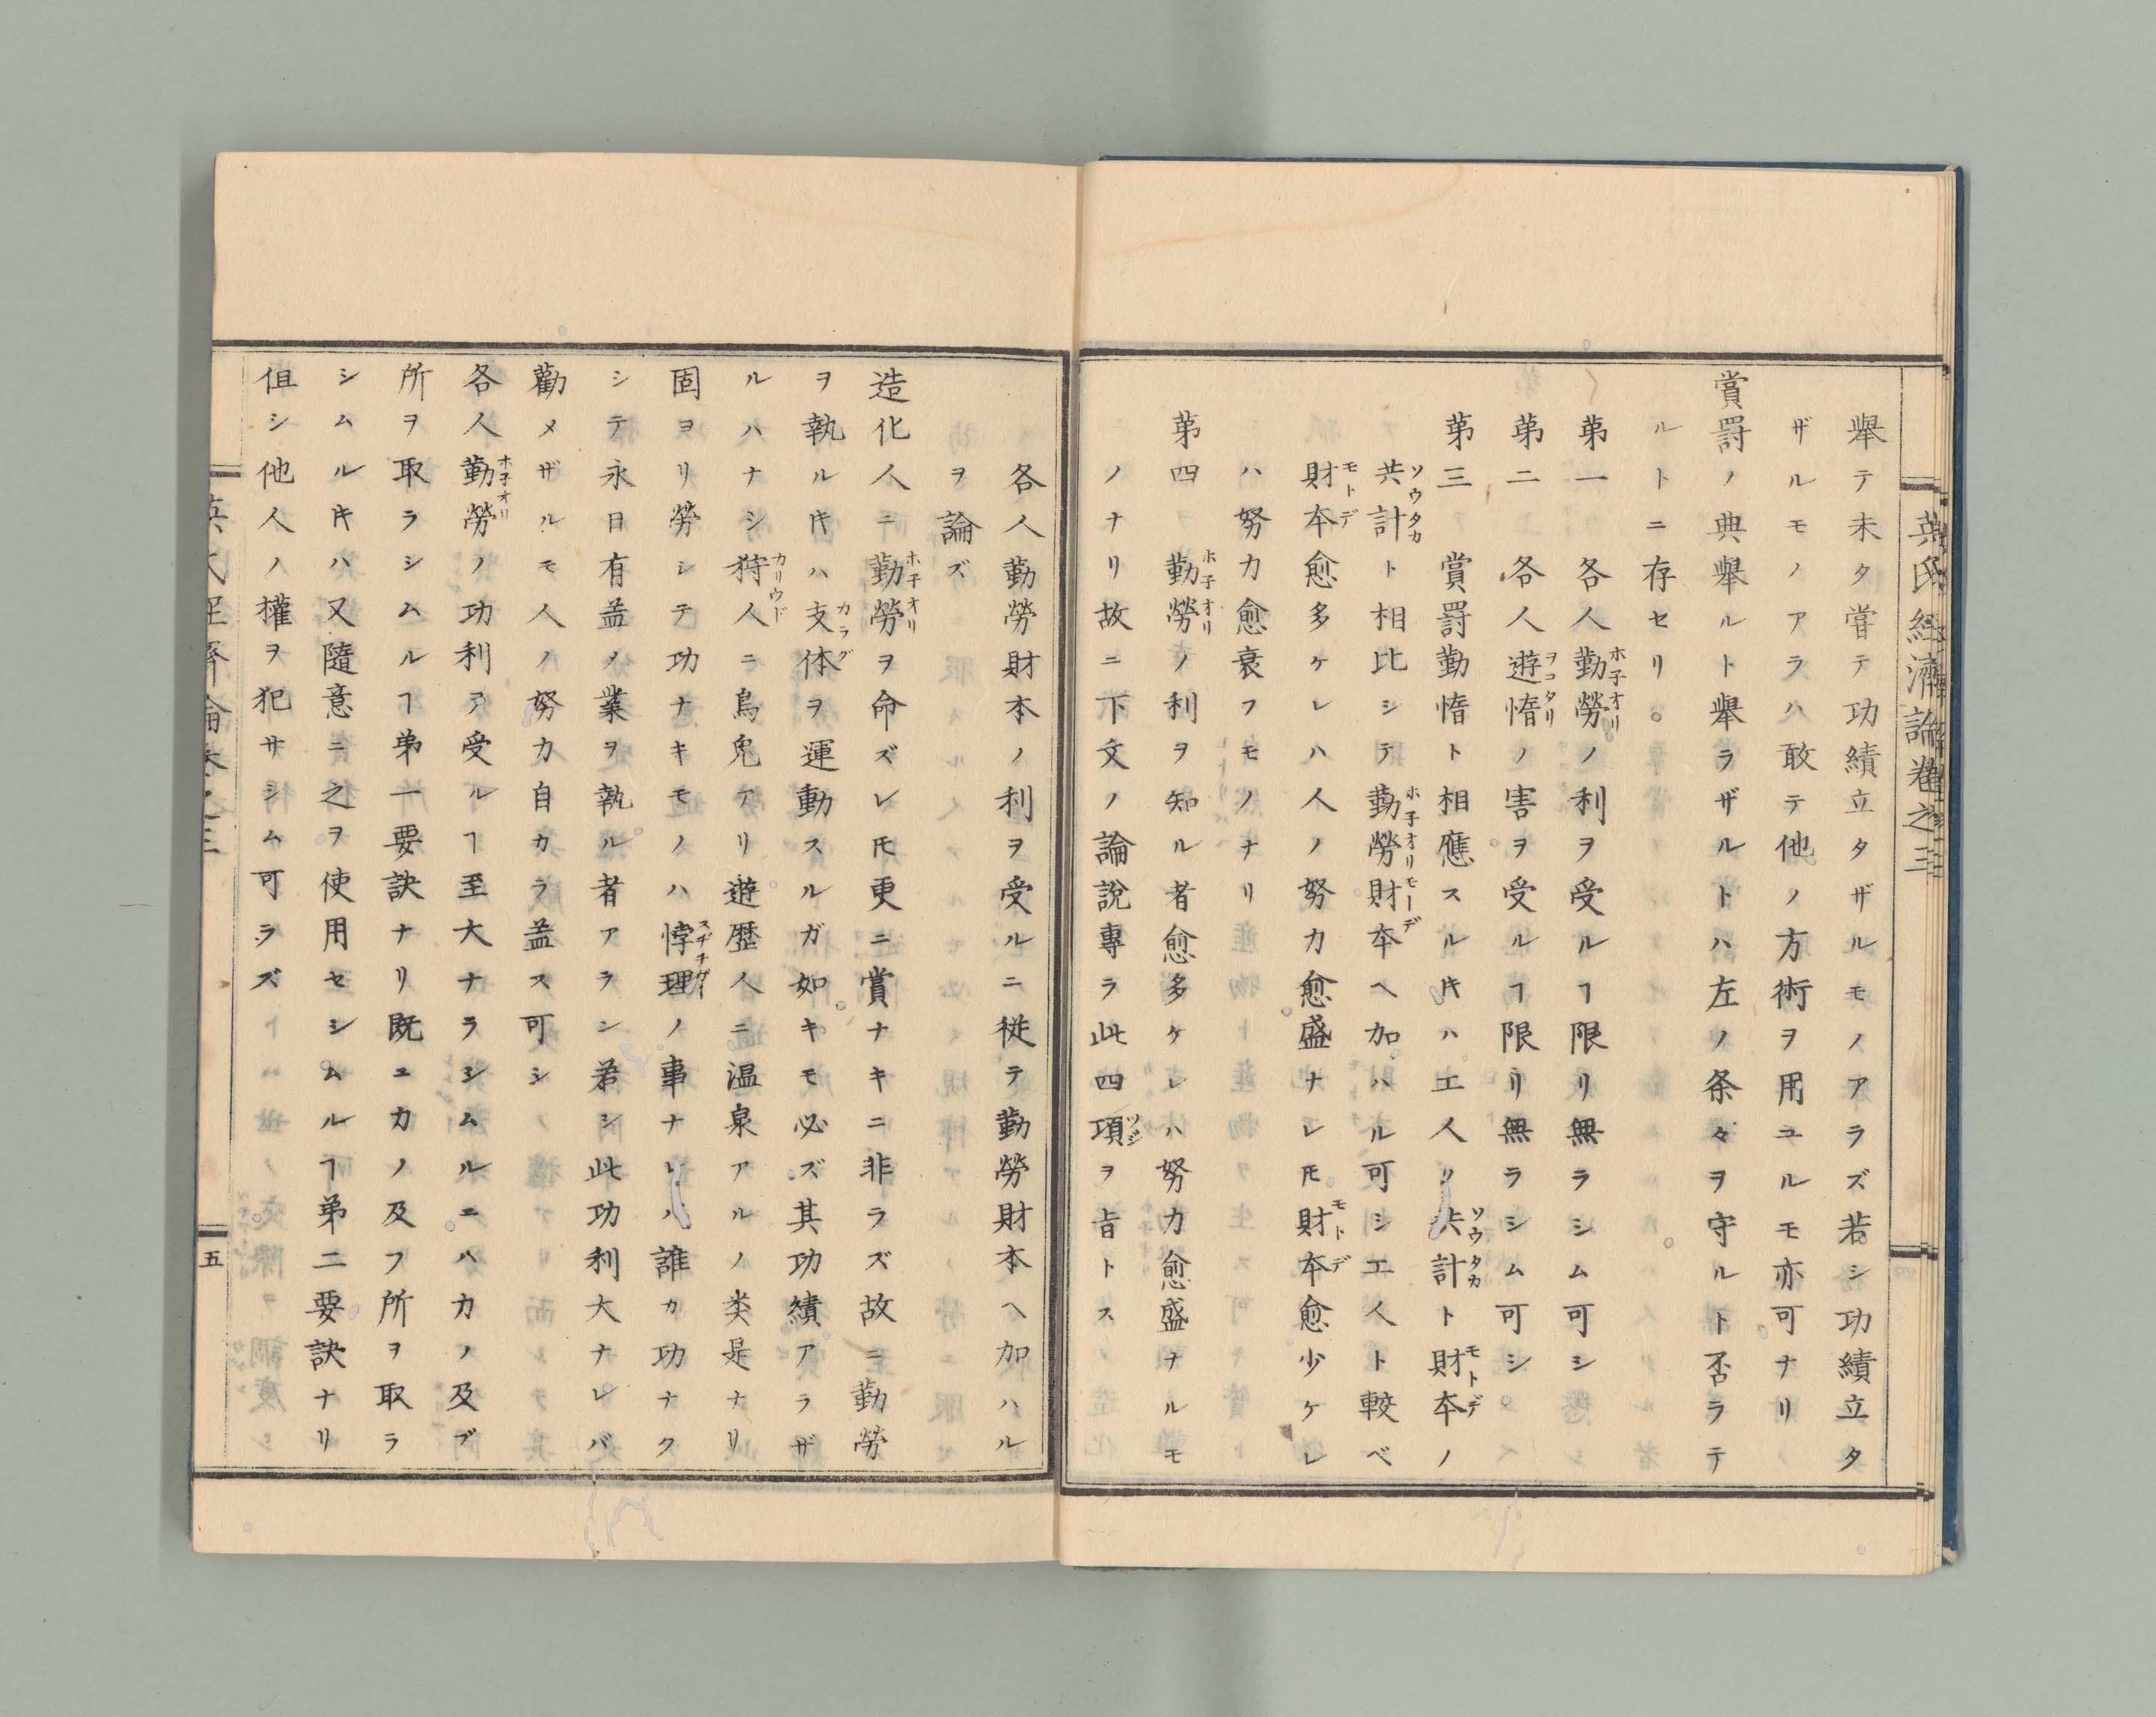 英氏經濟論卷之三
擧テ未タ甞テ功績立タザルモノアラズ若シ功績立タ
ザルモノアラハ敢テ他ノ方術ヲ用ユルモ亦可ナリ
賞罸ノ典擧ルト擧ラザルトハ左ノ条々ヲ守ルト否ラテ
ルトニ存セリ。
第一　各人勤勞ノ利ヲ受ルヿ限リ無ラシム可シ
ホ子オリ
第二　各人遊惰ノ害ヲ受ルヿ限リ無ラシム可シ
ヲコタリ
第三　賞罸勤惰ト相應スルㇳキハ工人ノ共計ト財夲ノ
ソウタカ　モトデ
共計ト相比シテ勤勞財夲ヘ加ハル可シ工人ト較ベ
ソウタカ　ホ子オリモーデ
財夲愈多ケレハ人ノ努力愈盛ナレ𪜈財夲愈少ケレ
モトデ　モトデ
ハ努力愈衰フモノナリ
第四　勤勞ノ利ヲ知ル者愈多ケレハ努力愈盛ナルモ
ホ子オリ
ノナリ故ニ下文ノ論說專ラ此四項ヲ旨トス
ツジ
各人勤勞財本ノ利ヲ受ルニ従テ勤勞財本ヘ加ハル
ヲ論ズ
造化人ニ勤勞ヲ命ズレ𪜈更ニ賞ナキニ非ラズ故ニ勤勞
ホ子オリ
ヲ執ルㇳキハ支体ヲ運動スルガ如キモ必ズ其功績アラザ
カラダ
ルハナシ狩人ニ鳥兎アリ遊歴人ニ温泉アルノ类是ナリ
カリウド
固ヨリ勞シテ功ナキモノハ悖理ノ事ナレハ誰カ功ナク
スヂチガイ
シテ永日有益ノ業ヲ執ル者アラン若シ此功利大ナレバ
勸メザルモ人ノ努力自カラ益ス可シ
各人勤勞ノ功利ヲ受ルヿ至大ナラシムルニハ力ノ及ブ
ホ子オリ
所ヲ取ラシムルヿ第一要訣ナリ既ニカノ及フ所ヲ取ラ
シムルㇳキハ又隨意ニ之ヲ使用セシムルヿ第二要訣ナリ
但シ他人ノ權ヲ犯サシム可ラズ
英氏經濟論卷之三
五